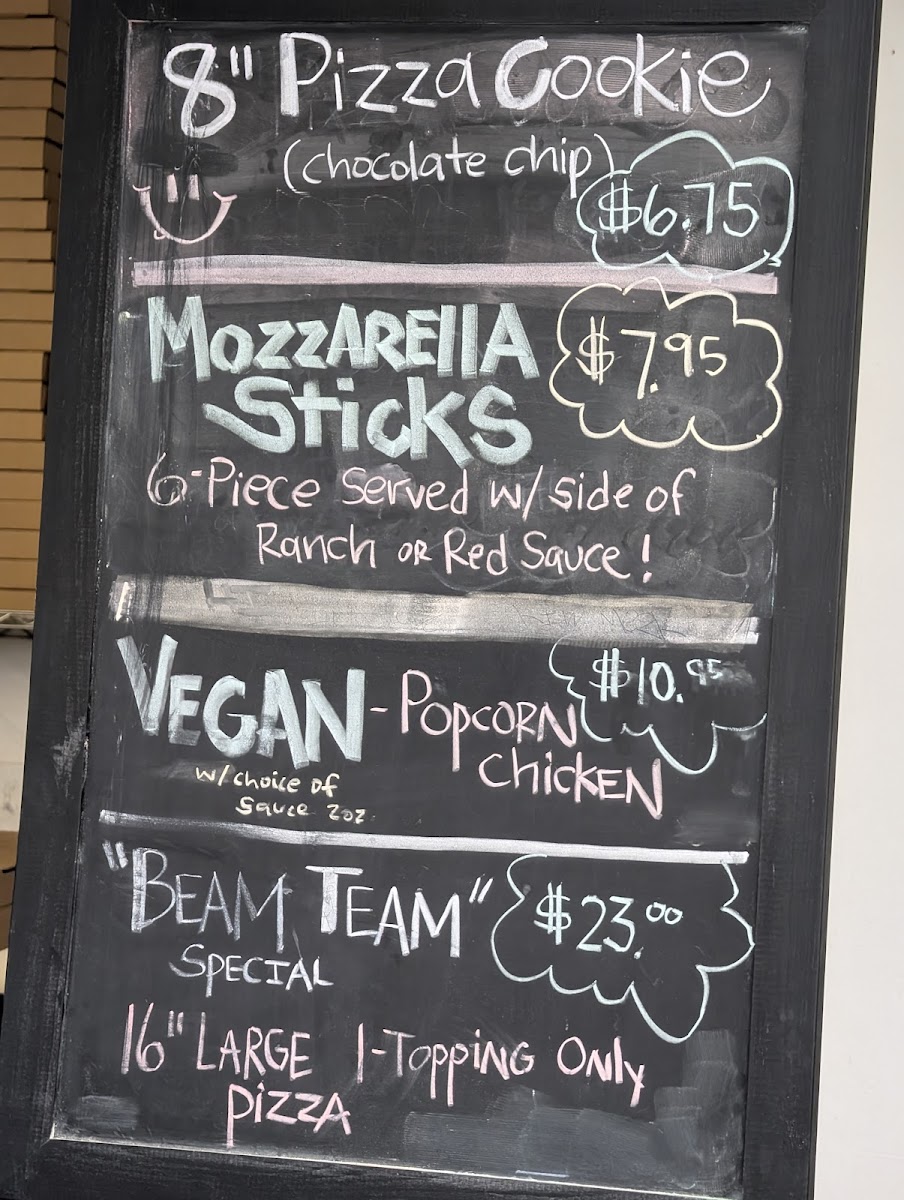 8" Pizza Cookie
(chocolate chip)
$6.75
MozzAREllA
Sticks
$7.95
6-Piece Served w/ side of
Ranch OR Red Sauce!
VEGAN - POPCORN
chicKEN
$10.95
w/choice of
sauce 2oz.
"BEAM TEAM"
SPECIAL
$23.00
16" LARGE 1-TOPPING ONly
PIZZA